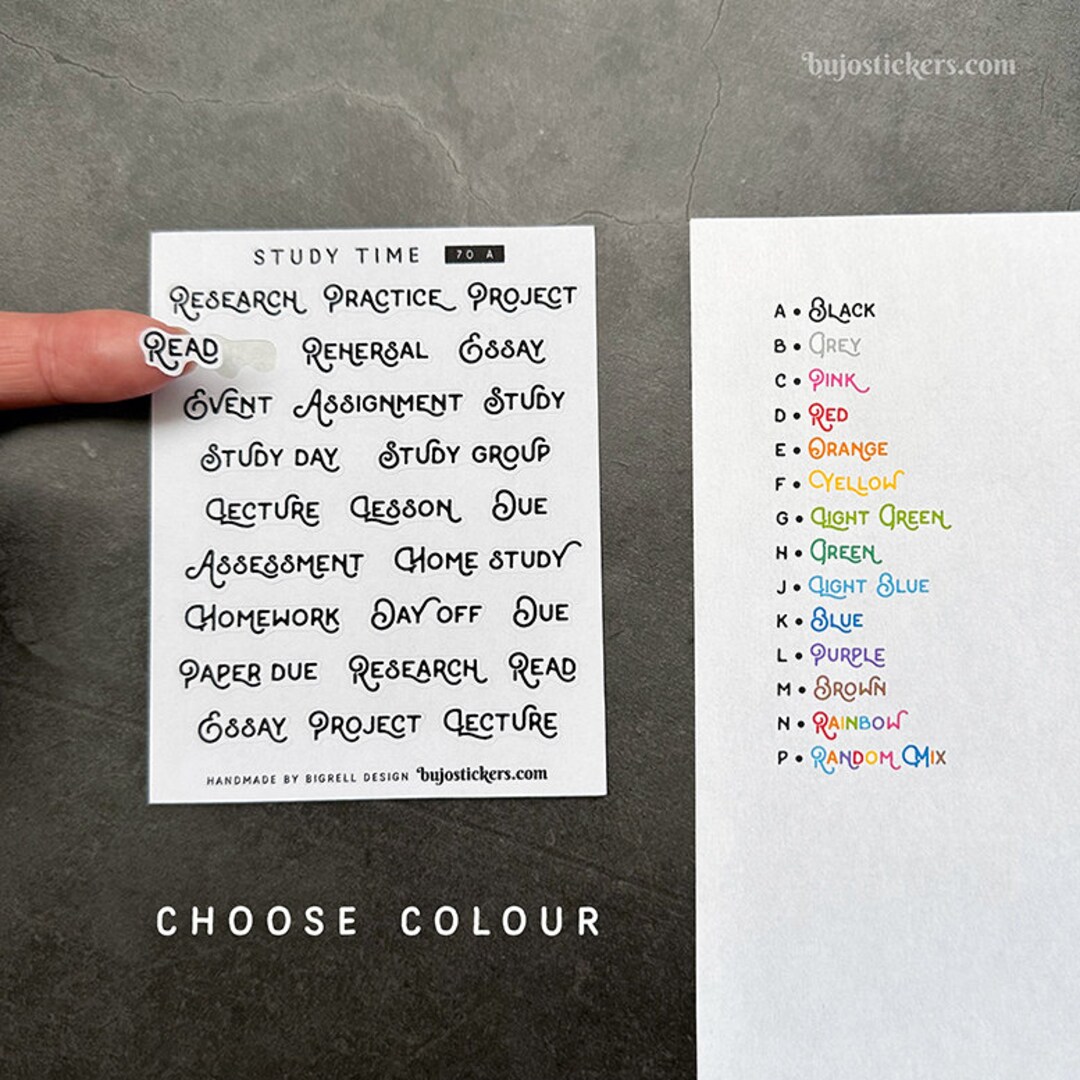 bujostickers.com
STUDY TIME 70 A
RESEARCH PRACTICE PROJECT
READ REHERSAL ESSAY
EVENT ASSIGNMENT STUDY
STUDY DAY STUDY GROUP
LECTURE LESSON DUE
ASSESSMENT HOME STUDY
HOMEWORK DAY OFF DUE
PAPER DUE RESEARCH READ
ESSAY PROJECT LECTURE
HANDMADE BY BIGRELL DESIGN bujostickers.com
A • BLACK
B • GREY
C • PINK
D • RED
E • ORANGE
F • YELLOW
G • LIGHT GREEN
H • GREEN
J • LIGHT BLUE
K • BLUE
L • PURPLE
M • BROWN
N • RAINBOW
P • RANDOM MIX
CHOOSE COLOUR